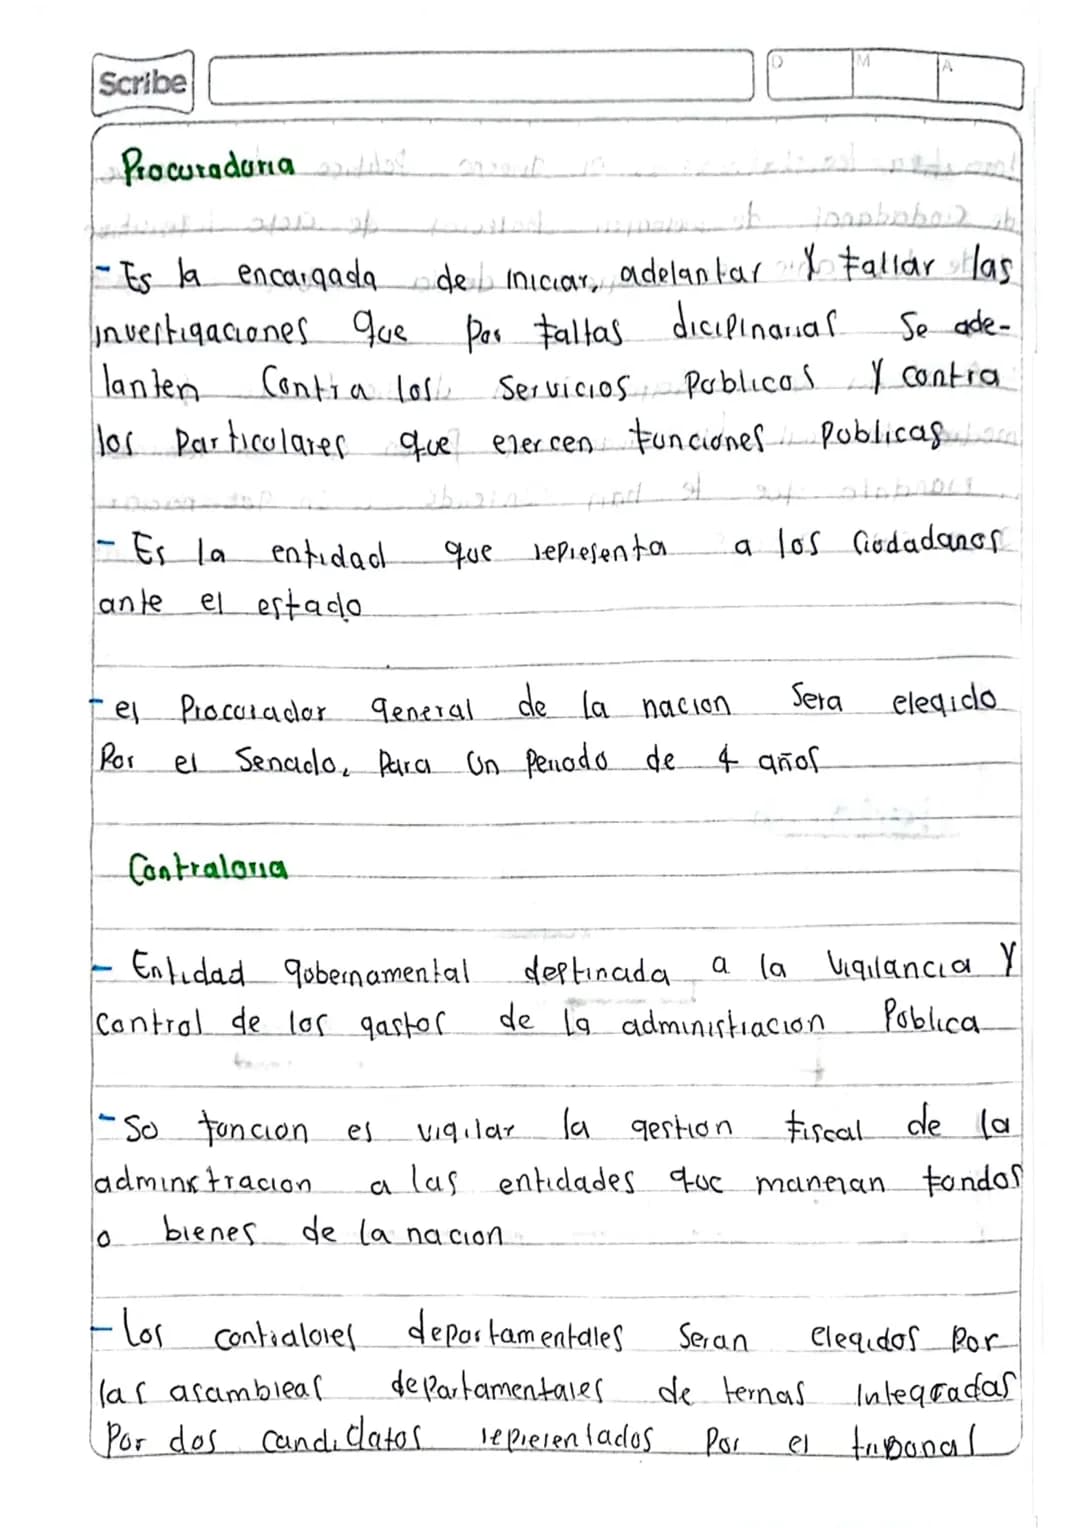 Scribe
D M A
Procuraduria
- Es la encargada de iniciar, adelantar Y fallar las
investigaciones que por faltas dicipinarias Se ade-
lanten Contra los Servicios Publicos Y contra
los Particulares que ejercen funciones Publicas
- Es la entidad que representa a los Ciudadanos
ante el estado
- el Procurador general de la nacion Sera elegido
Por el Senado, Para Un Periodo de 4 años
Contraloria
- Entidad gobernamental destinada a la Vigilancia Y
control de los gastos de la administracion Publica
- Su funcion es vigilar la gestion fiscal de la
adminstracion a las entidades que manejan fondos
o bienes de la nacion
- Los contralores departamentales Seran elegidos Por
las asambleas departamentales de ternas Integradas
Por dos candidatos representados Por el tribunal